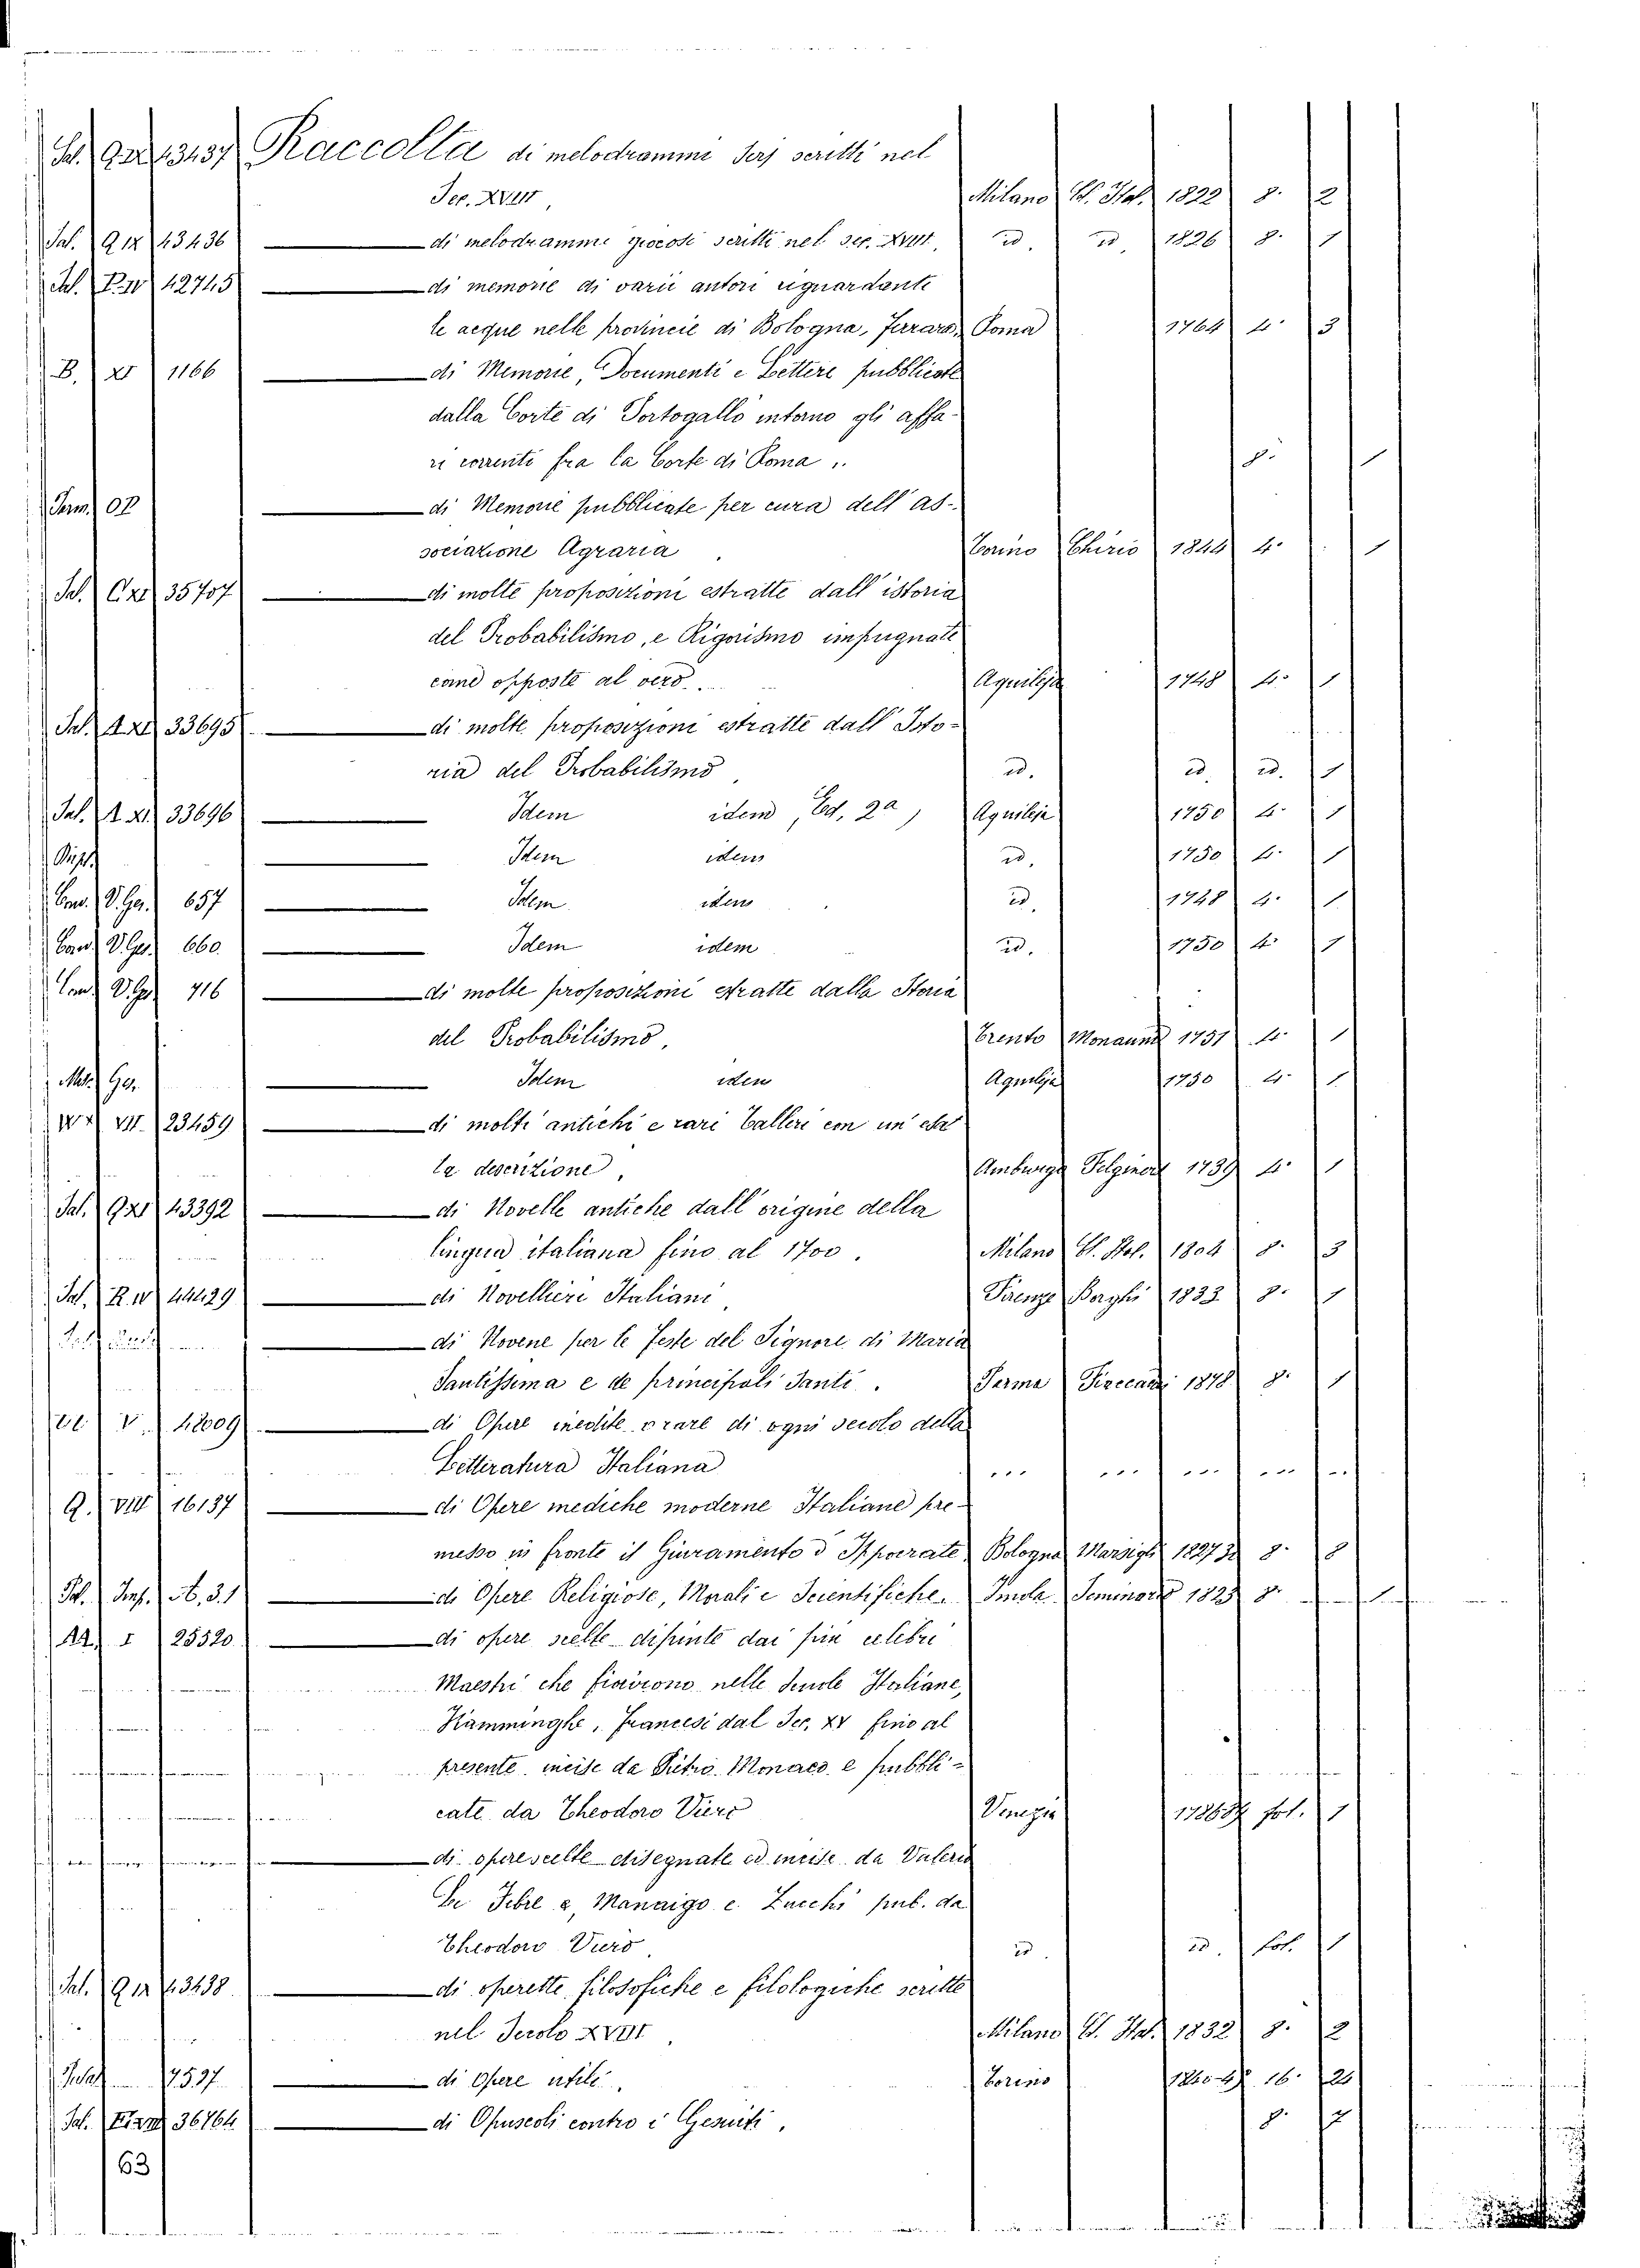 Sal. Q IX 43437 Raccolta di melodrammi serj scritti nel
Sec. XVIII, Milano Cl. Ital. 1822 8. 2
Sal. Q IX 43436 — di melodrammi giocosi scritti nel sec. XVIII, id. id. 1826 8. 1
Sal. P. IV 42745 — di memorie di varii autori riguardanti
le acque nelle provincie di Bologna, Ferrara, Roma 1764 4. 3
B. XI 1166 — di Memorie, Documenti e Lettere pubblicate
dalla Corte di Portogallo intorno gli affa-
ri correnti fra la Corte di Roma 8. 1
— di Memorie pubblicate per cura dell' as-
sociazione Agraria Torino Chirio 1844 4. 1
Sal. 35707 — di molte proposizioni estratte dall' istoria
del Probabilismo, e Rigorismo impugnate
come opposte al vero Aquileja 1748 4. 1
Sal. A XI 33695 — di molte proposizioni estratte dall' Isto-
ria del Probabilismo id. id. id. 1
Sal. A XI 33696 — Idem idem, Ed. 2a, Aquileja 1750 4. 1
— Idem idem id. 1750 4. 1
Conv. V. Ger. 657 — Idem idem id. 1748 4. 1
Conv. V. Ger. 660 — Idem idem id. 1750 4. 1
Conv. V. Ger. 716 — di molte proposizioni estratte dalla Storia
del Probabilismo, Trento Monauni 1751 4. 1
— Idem idem Aquileja 1750 4. 1
VII. 23459 — di molti antichi e rari Talleri con un' esat
ta descrizione, Amburgo 1739 4. 1
Sal. Q XI 43392 — di Novelle antiche dall' origine della
lingua italiana fino al 1700. Milano Cl. Ital. 1804 8. 3
Sal. R. IV 44429 — di Novellieri Italiani, Firenze Borghi 1833 8. 1
— di Novene per le feste del Signore di Maria
Santissima e de principali Santi. Parma Fiaccadori 1848 8. 1
V. — di Opere inedite o rare di ogni secolo della
Letteratura Italiana ... ... ... ... ...
Q. VIII 16137 — di Opere mediche moderne Italiane pre-
messo in fronte il Giuramento d'Ippocrate, Bologna Marsigli 1827 32 8. 8
— di Opere Religiose, Morali e Scientifiche. Imola Seminario 1823 8. 1
I 25520 — di opere scelte dipinte dai più celebri
Maestri che fiorirono nelle Scuole Italiane,
Fiamminghe, Francesi dal Sec. XV fino al
presente incise da Pietro Monaco e pubbli-
cate da Theodoro Viero Venezia 1786 87 fol. 1
— di opere scelte disegnate ed incise da Valerio
Le Febre e, Manaigo e Zucchi pub. da
Theodoro Viero id. id. fol. 1
Sal. Q IX 43438 — di operette filosofiche e filologiche scritte
nel Secolo XVIII, Milano Cl. Ital. 1832 8. 2
— di Opere utili, Torino 16.
Sal. 36764 — di Opuscoli contro i Gesuiti, 8.
63